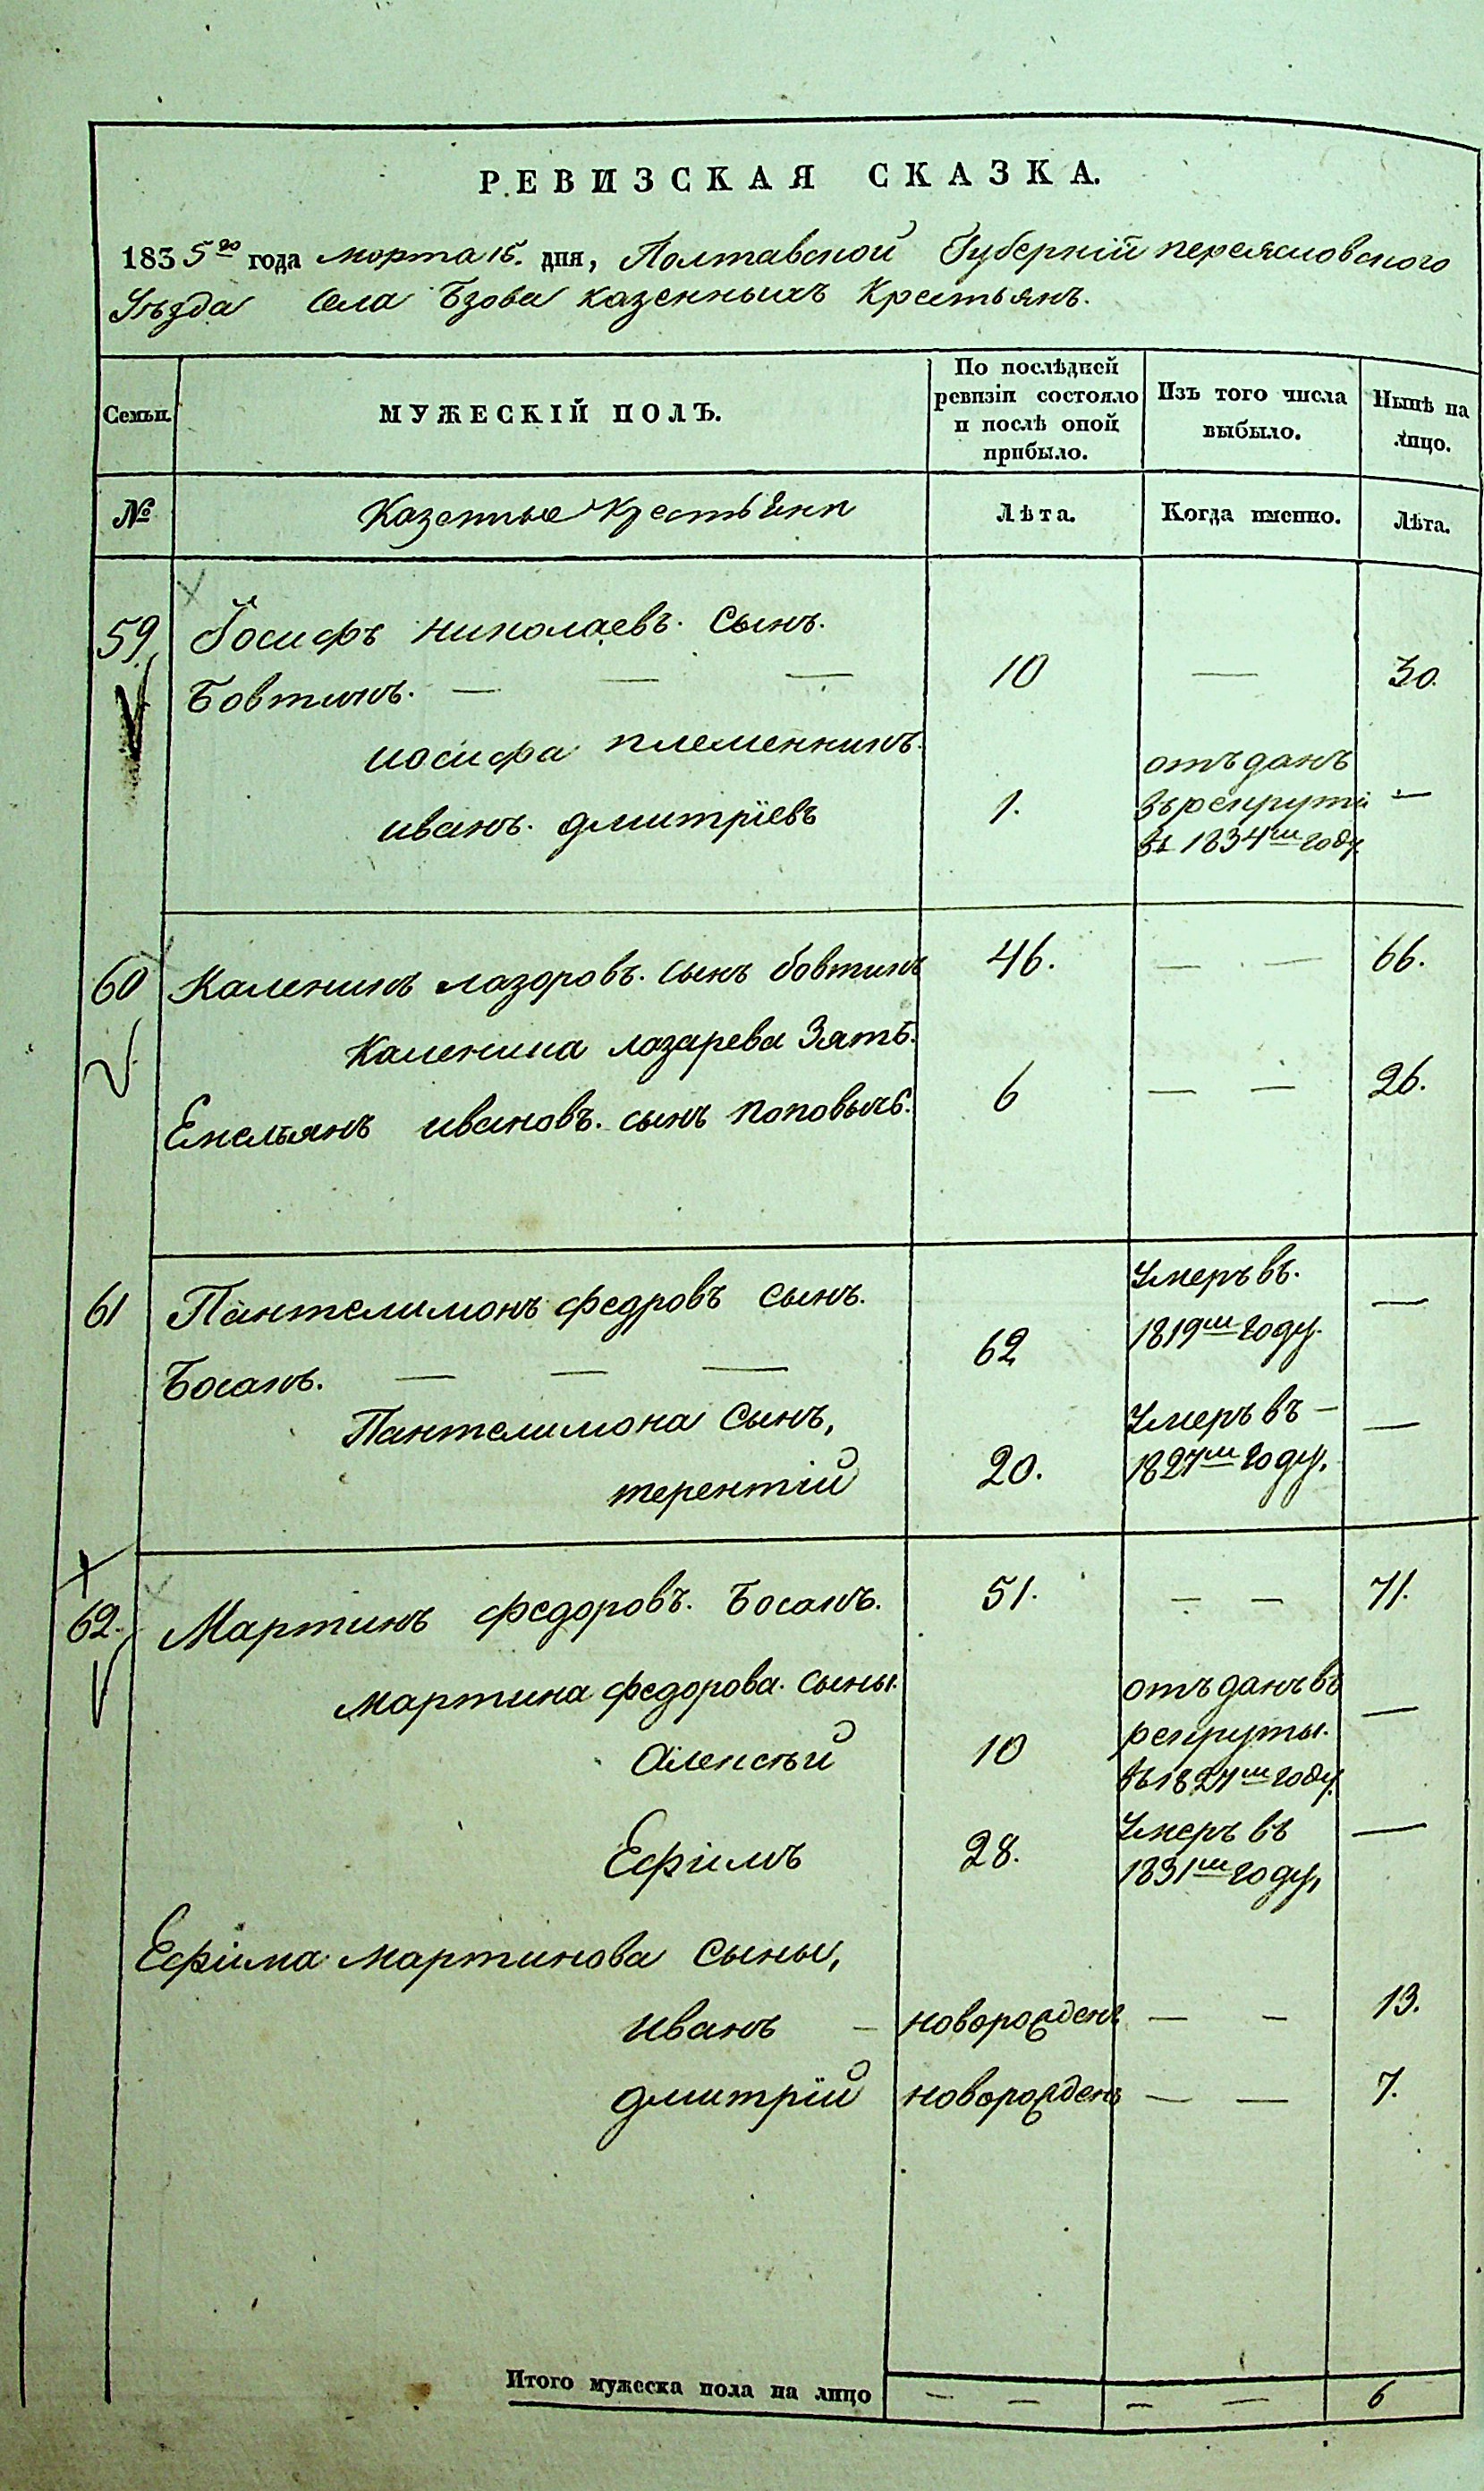 РЕВИЗСКАЯ СКАЗКА.
1835го года марта 15. дня, Полтавской Губернїй переясловского
Уѣзда села Бзова казенныхъ Крестьянъ.
Семьи.
МУЖЕСКІЙ ПОЛЪ.
По послѣдней ревизіи состояло и послѣ оной прибыло.
Изъ того числа выбыло.
Нынѣ на лицо.
№ Казенные Крестьяни Лѣта. Когда именно. Лѣта.
59 Іосифъ николаевъ. сынъ.
Бовтикъ. — — — 10 — 30.
иосифа племенникъ.
отъданъ
иванъ. дмитрїевъ 1. въ рекруты —
въ 1834м году.
60 Каленикъ лазоровъ. сынъ бовтикъ 46. — — 66.
Каленика лазарева Зять.
Емельянъ ивановъ. сынъ поповычъ. 6 — — 26.
61 Пантелимонъ федровъ сынъ. Умеръ въ. —
Босакъ. — — — 62 1819м году.
Пантелимона сынъ, Умеръ въ — —
терентій 20. 1827м году.
62. Мартинъ федоровъ. Босакъ. 51. — — 71.
мартина федорова. сыны. отъданъ въ
Алексѣй 10 рекруты. —
въ 1827м году.
Ефимъ 28. Умеръ въ —
1831м году,
Ефіма мартинова сыны,
иванъ — новорожденъ — — 13.
дмитрїй новорожденъ — — 7.
Итого мужеска пола на лицо — — — — 6